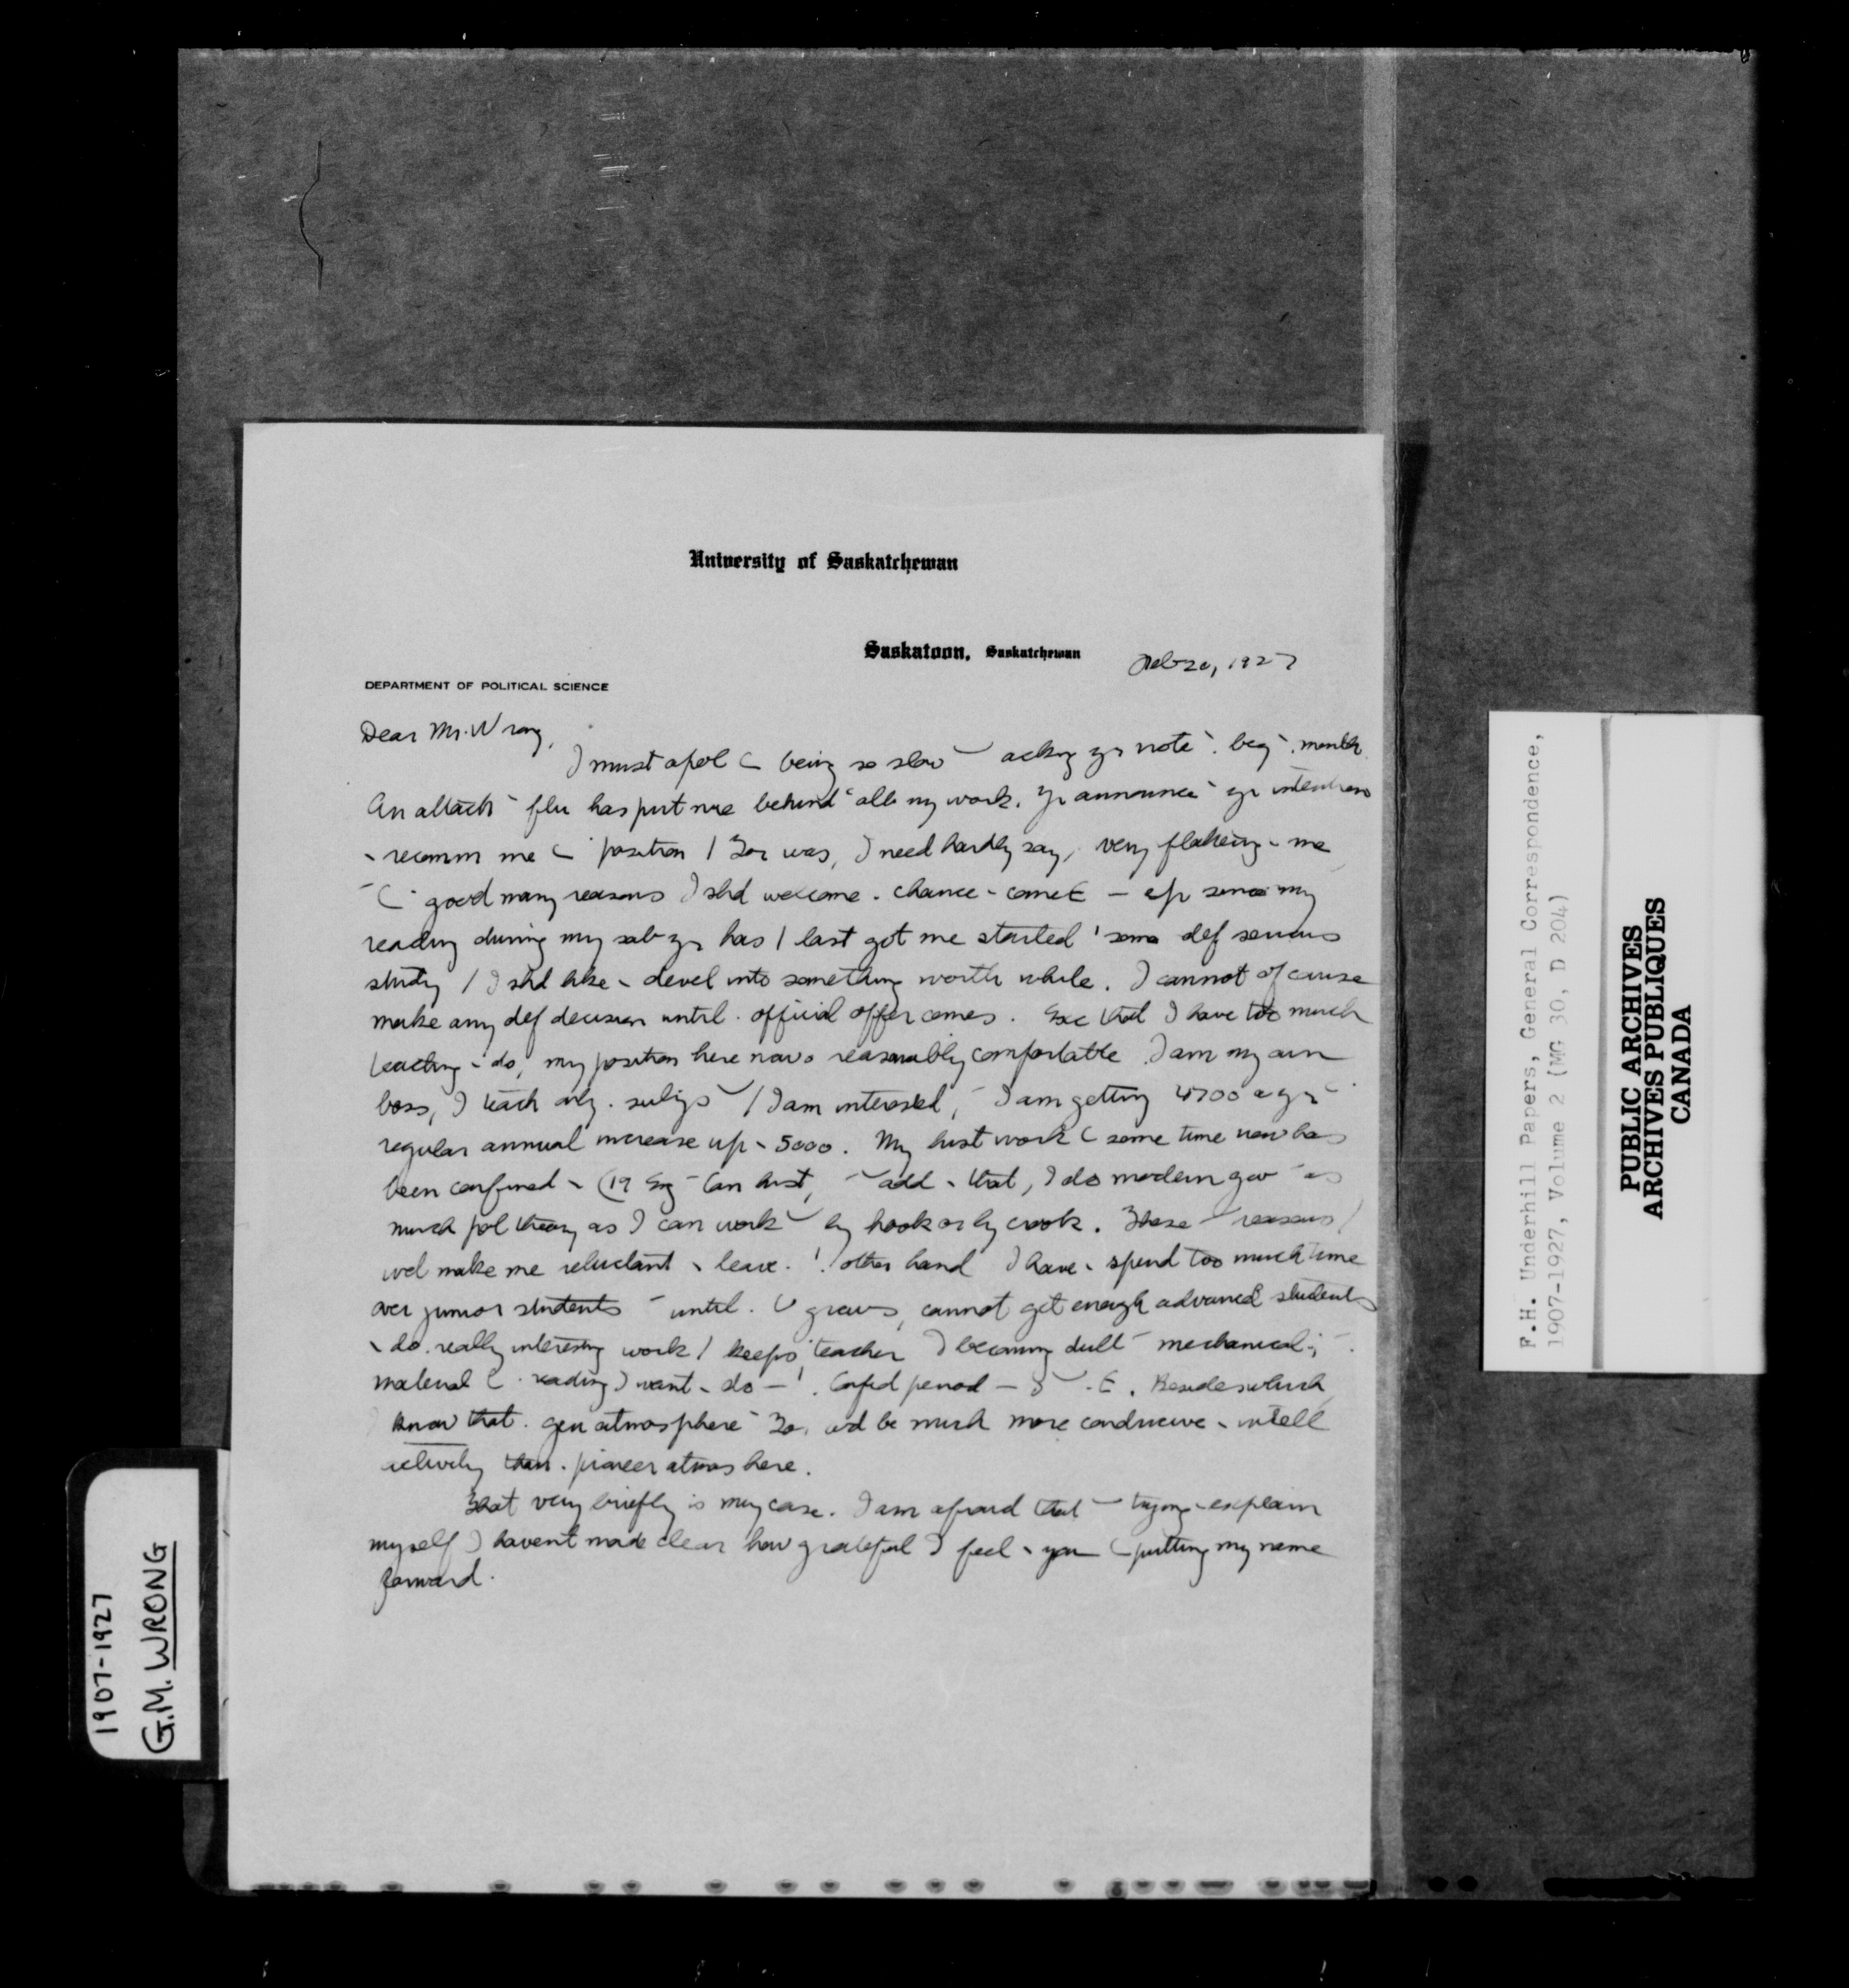 University of Saskatchewan
Saskatoon, Saskatchewan
Feb 20, 1927
DEPARTMENT OF POLITICAL SCIENCE
Dear Mr. Wrong,
I must apol ( being so slow ⌣ ackng yr note ` . beg ` . month.
An attack ` flu has put me behind ` all my work. Yr announce ` yr intentions
\ recomm me ( ` position / Tor was, I need hardly say, very flattering \ me
( ` good many reasons I shd welcome . chance \ come E — esp since my
reading during my sab yr has / last got me started ' some def serious
study / I shd like \ devel into something worth while. I cannot of course
make any def decision until . official offer comes. Exc that I have too much
teaching \ do, my position here now is reasonably comfortable. I am my own
boss, I teach only . subjs ⌣ / I am interested, ` I am getting 4700 a yr `
regular annual increase up \ 5000. My hist work ( some time now has
been confined \ (19 Eng ` Can hist, ` ⌣ add \ that, I do modern gov ` as
much pol theory as I can work ⌣ by hook or by crook. These ` reasons /
wd make me reluctant \ leave. ' . / other hand I have \ spend too much time
over junior students ` until . U grows, cannot get enough advanced students
\ do . really interesting work / keeps ` teacher becoming dull ` mechanical; ` .
material ( . reading I want \ do — ' . Confed period — is ⌣ . E. Besides which
I know that . gen atmosphere ` To. wd be much more conducive \ intell
activity than . pioneer atmos here.
That very briefly is my case. I am afraid that ⌣ trying \ explain
myself I havent made clear how grateful I feel \ you ( putting my name
forward.
1907-1927
G.M. WRONG
F.H. Underhill Papers, General Correspondence,
1907-1927, Volume 2 (MG 30, D 204)
PUBLIC ARCHIVES
ARCHIVES PUBLIQUES
CANADA